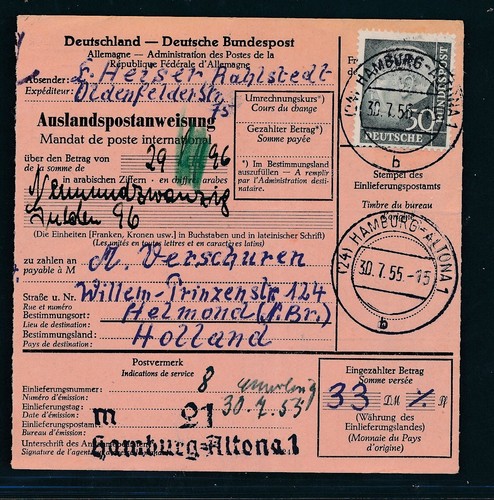 Deutschland — Deutsche Bundespost
Allemagne — Administration des Postes de la
République Fédérale d'Allemagne
Absender:
Expéditeur:
E. Heiser Hahlstedt
Oldenfelderstr.
75
Auslandspostanweisung
Mandat de poste international
Umrechnungskurs*)
Cours du change
Gezahlter Betrag*)
Somme payée
*) Im Bestimmungsland
auszufüllen — A remplir
par l'Administration destinataire.
über den Betrag von
de la somme de
29 96
in arabischen Ziffern - en chiffres arabes
Neunundzwanzig
Gulden 96
(Die Einheiten [Franken, Kronen usw.] in Buchstaben und in lateinischer Schrift)
(Les unités en toutes lettres et en caractères latins)
zu zahlen an
payable à M
M. Verschuren
Straße u. Nr.
Rue et numéro
Willem-Prinzenstr 124
Bestimmungsort:
Lieu de destination:
Helmond (N.Br.)
Bestimmungsland:
Pays de destination:
Holland
DEUTSCHE
BUNDESPOST
50
(24a) HAMBURG-ALTONA 1
30.7.55
b
Stempel des
Einlieferungspostamts
Timbre du bureau
(24a) HAMBURG-ALTONA 1
30.7.55.-15
b
Postvermerk
Indications de service
Einlieferungsnummer:
Numéro d'émission:
8
Einlieferungstag:
Date d'émission:
30.7.55
Einlieferungspostamt:
Bureau d'émission:
m 21
Hamburg-Altona 1
Unterschrift des
Signature de l'agent
Eingezahlter Betrag
Somme versée
33 DM Pf
(Währung des
Einlieferungslandes)
(Monnaie du Pays
d'origine)